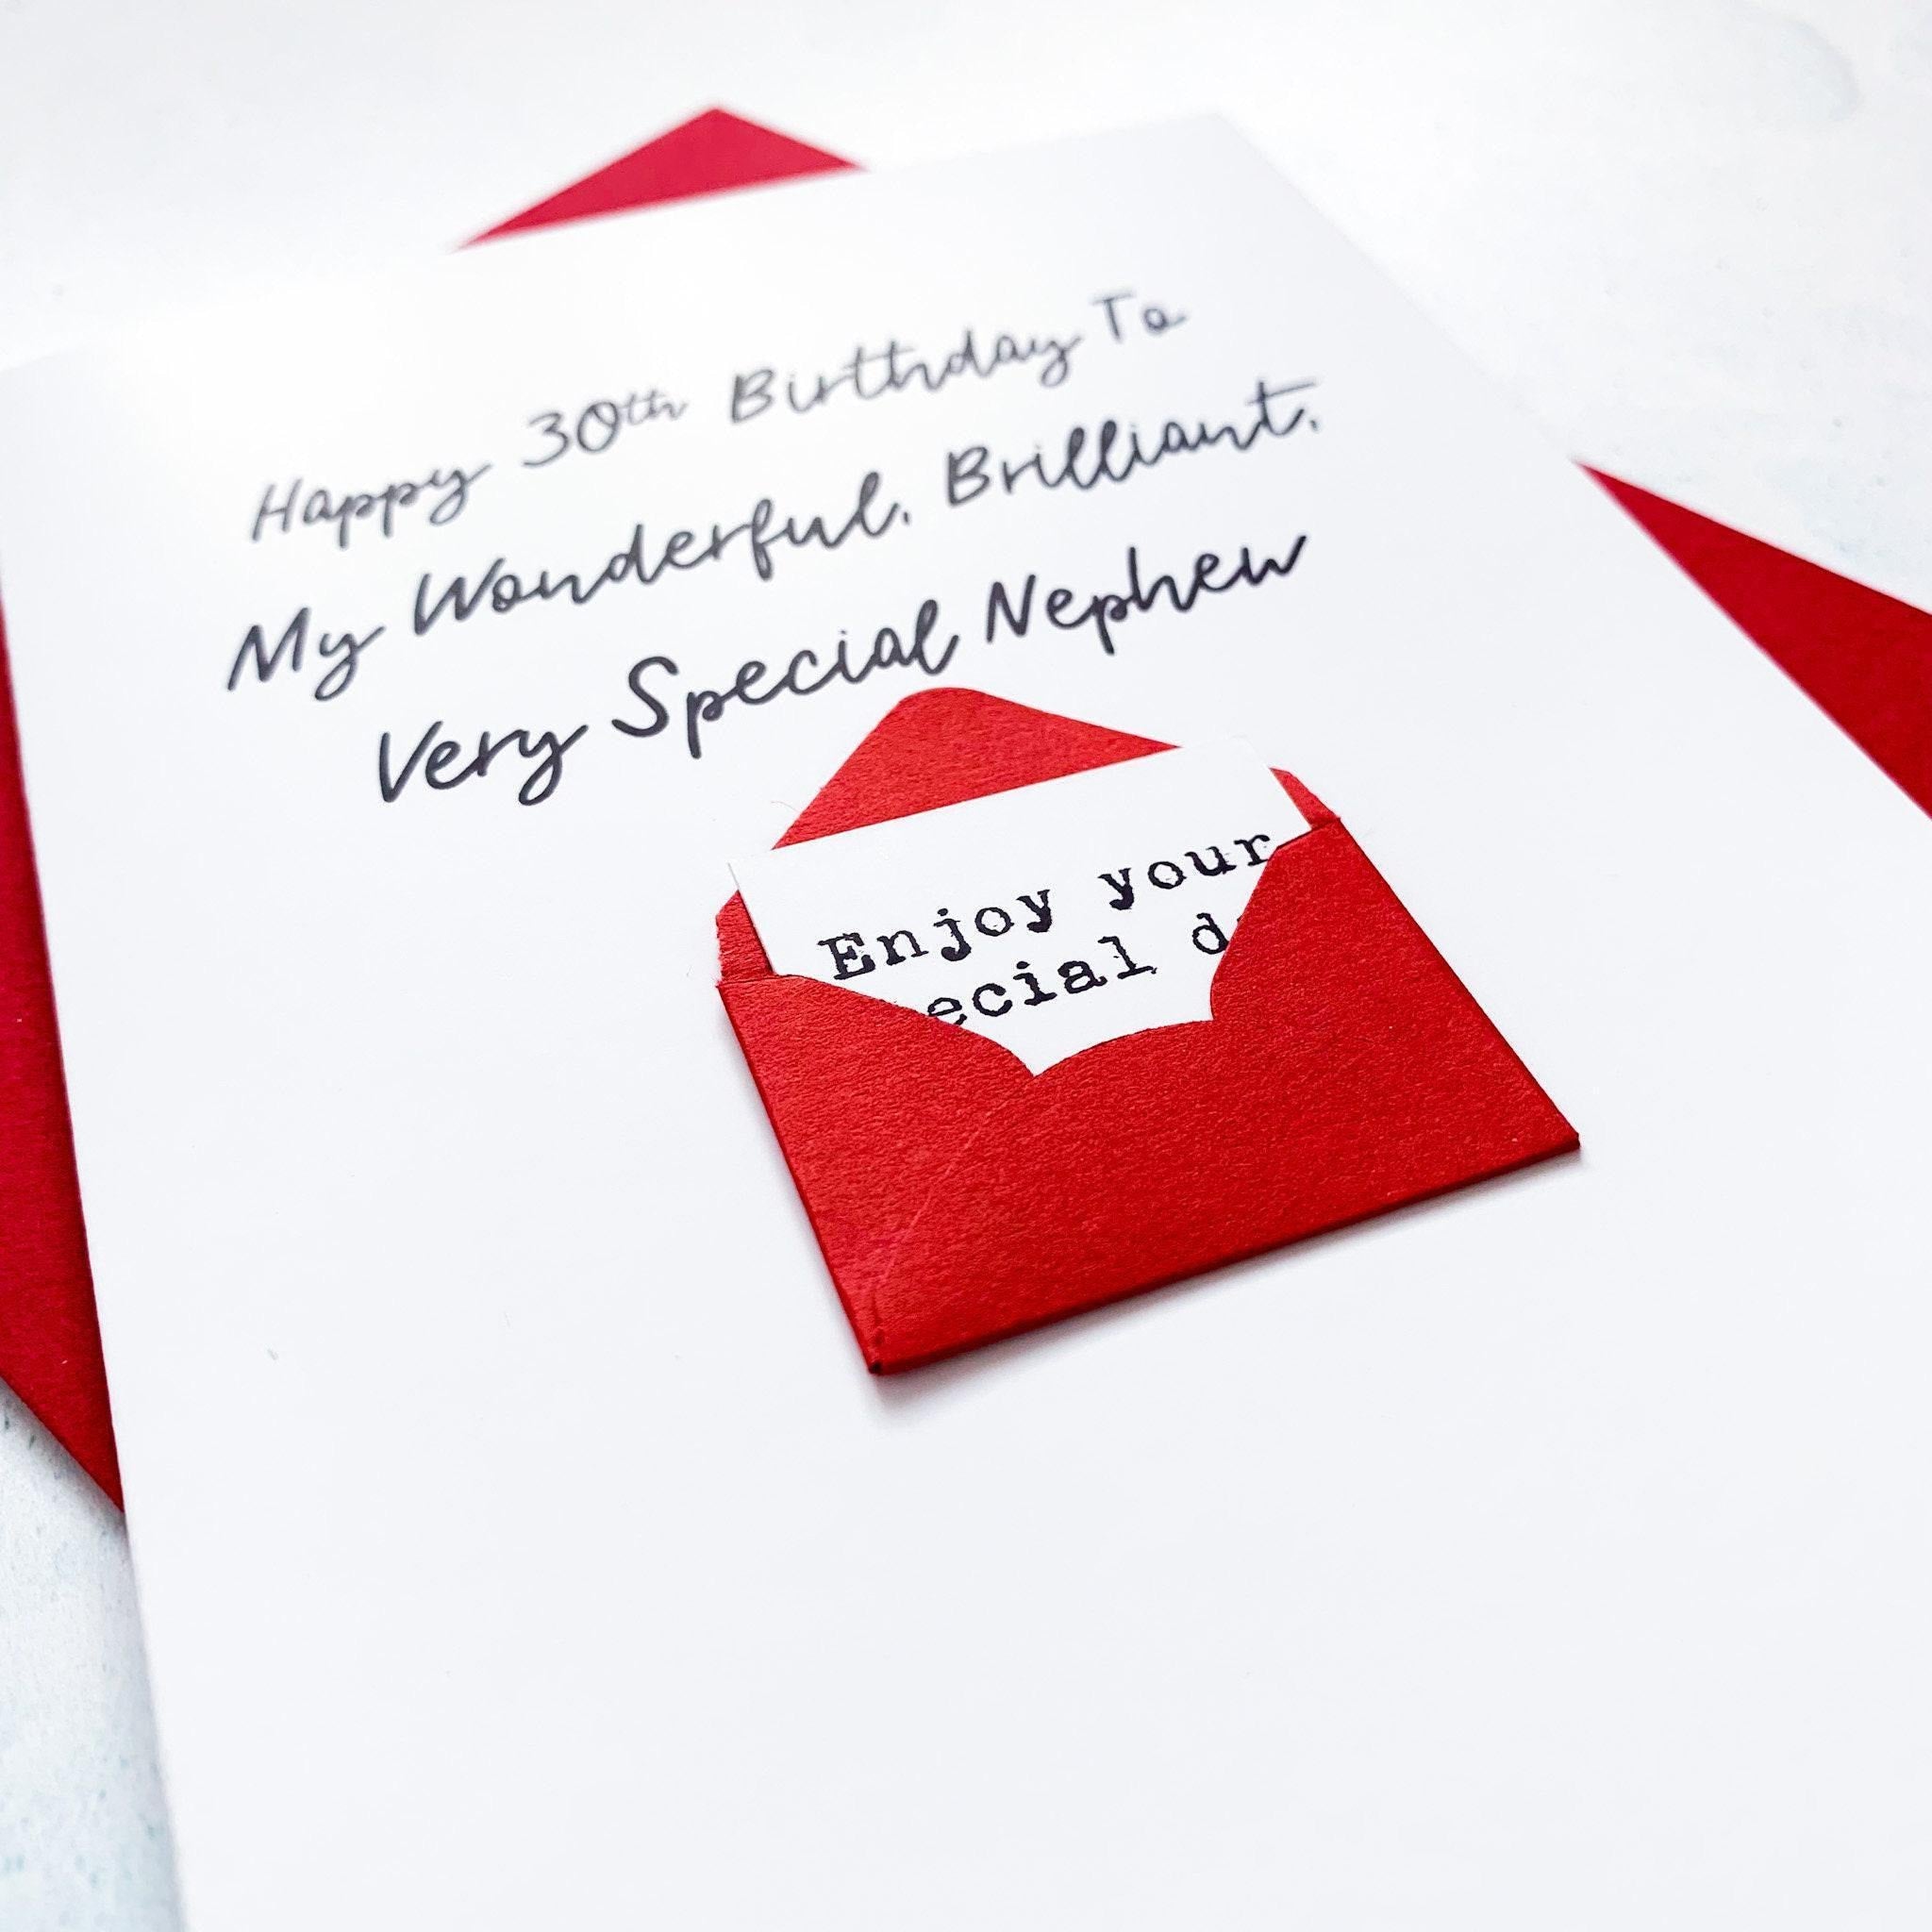 Happy 30th Birthday To
My Wonderful, Brilliant,
Very Special Nephew
Enjoy your
ecial d